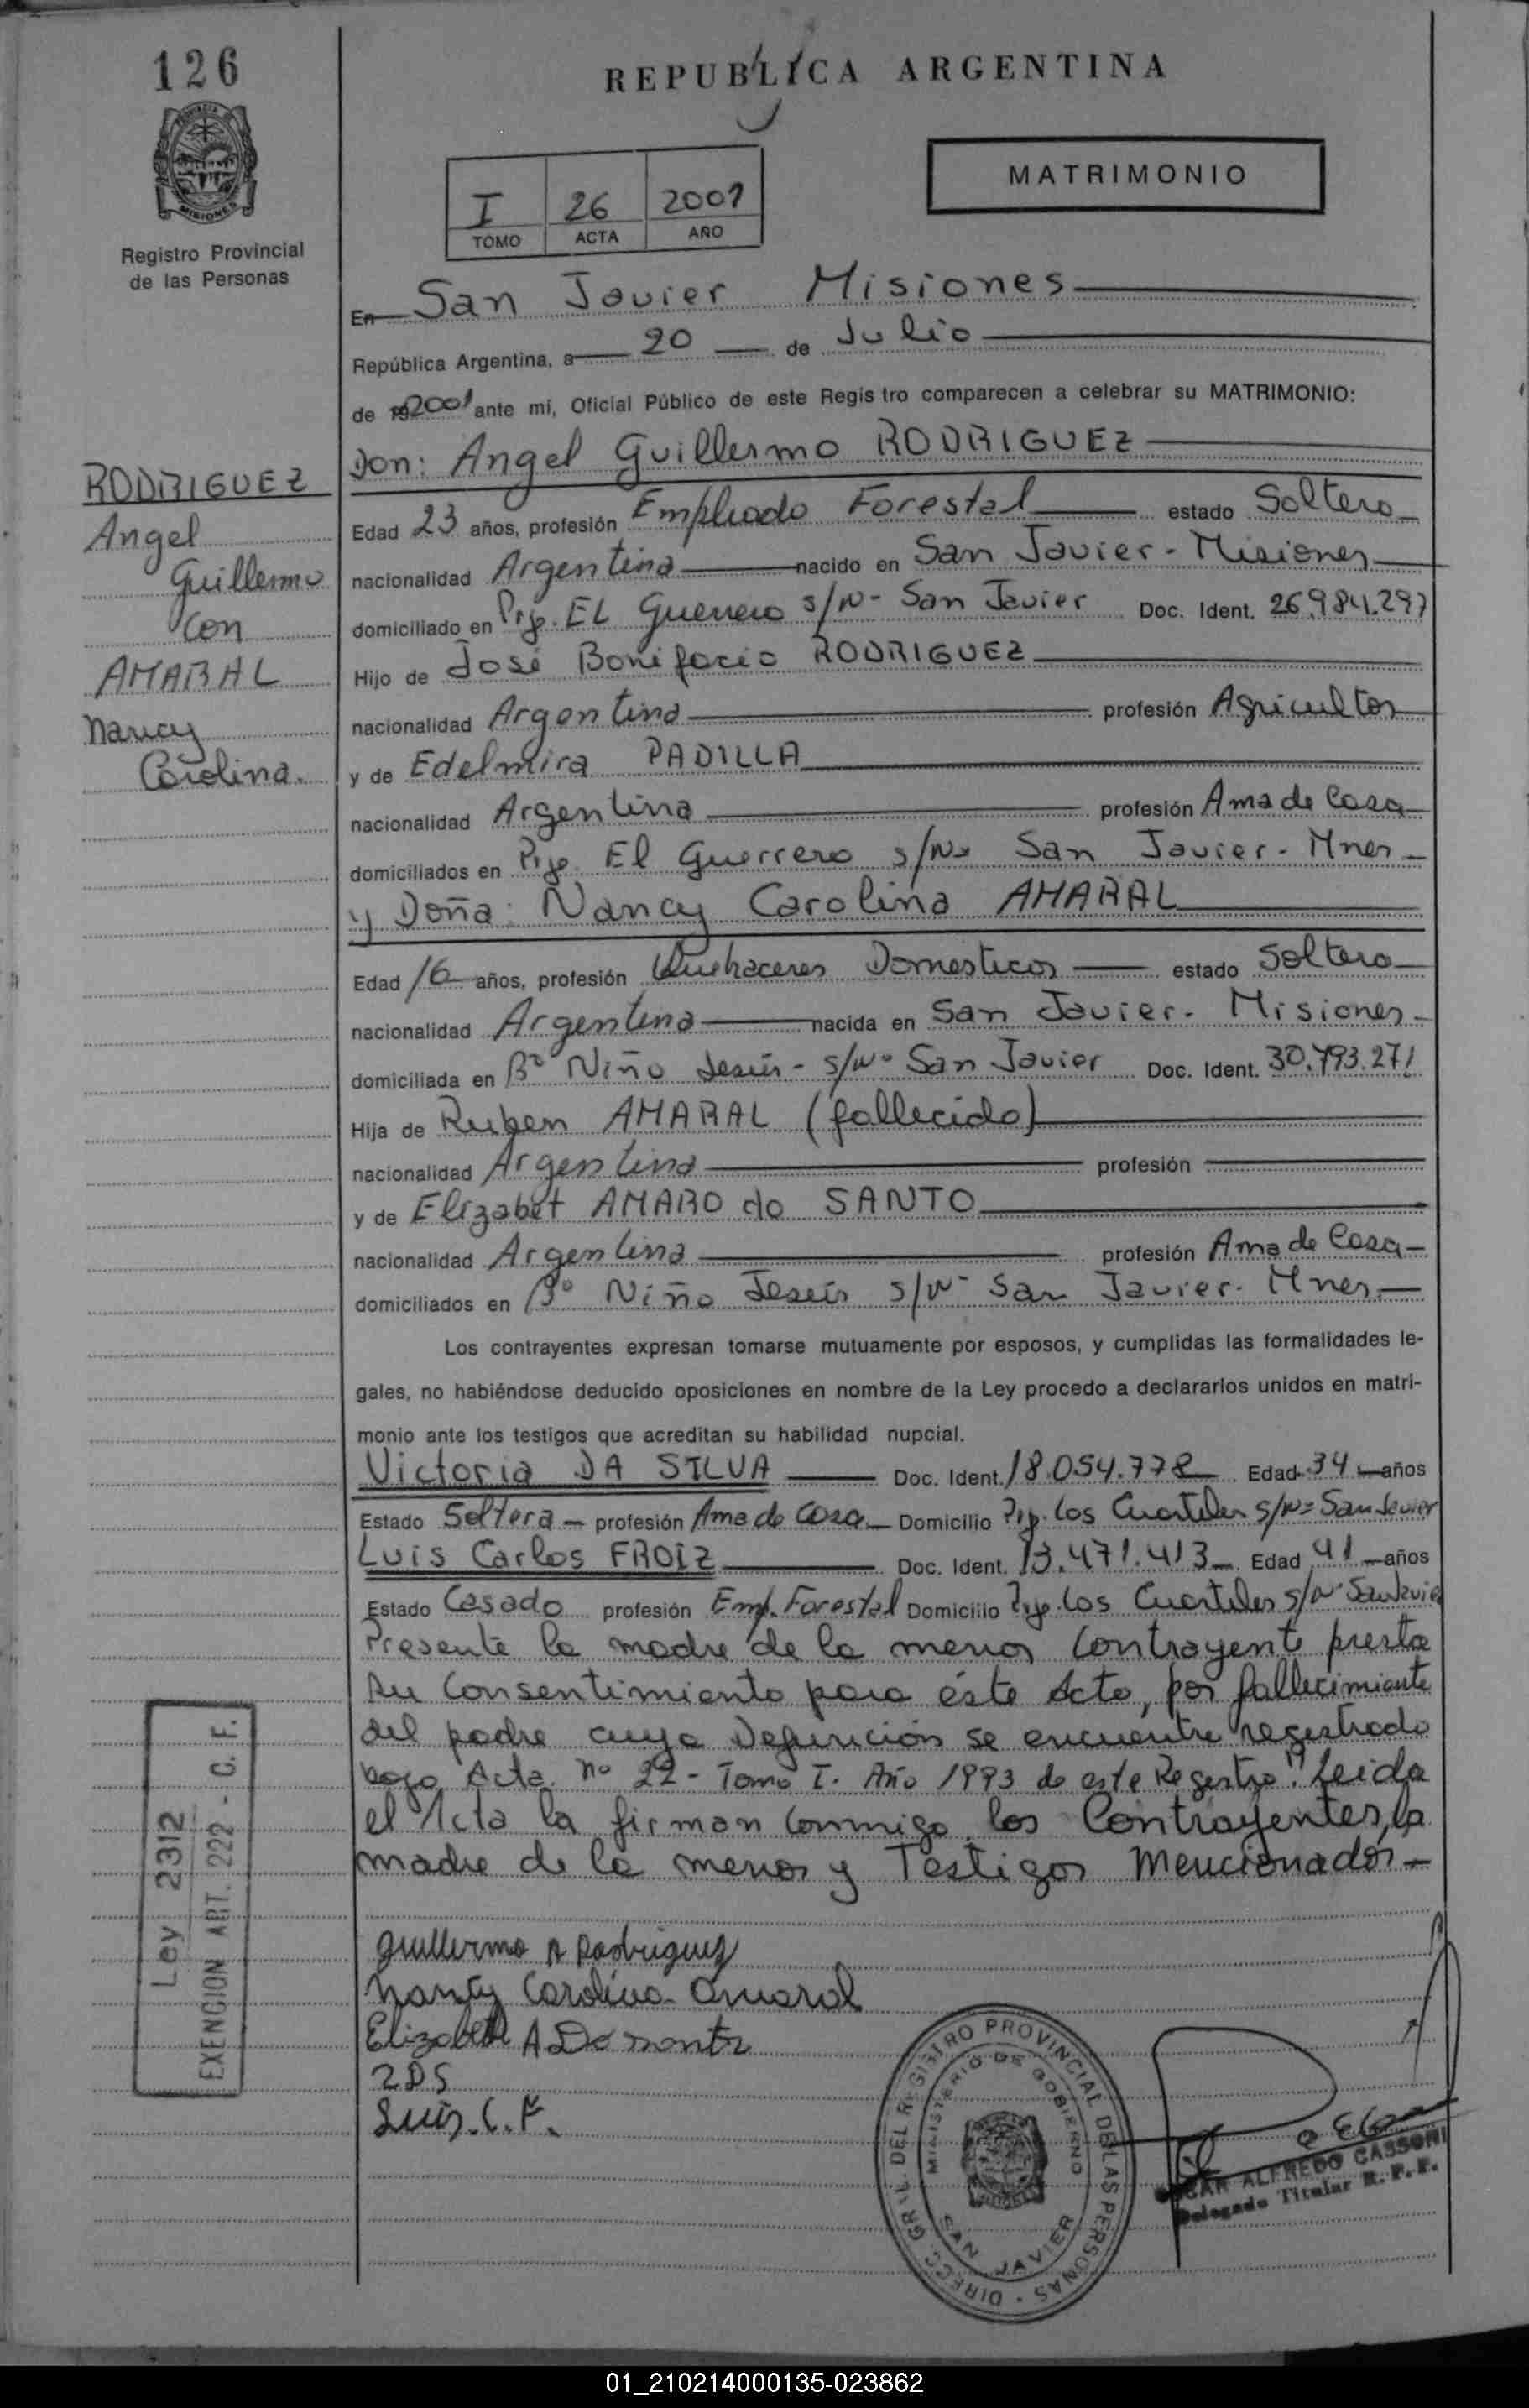 126
REPUBLICA ARGENTINA
MISIONES
Registro Provincial
de las Personas
I 26 2001
TOMO ACTA AÑO
MATRIMONIO
En San Javier Misiones
República Argentina, a 20 de Julio
de 2001 ante mi, Oficial Público de este Registro comparecen a celebrar su MATRIMONIO:
RODRIGUEZ
Angel
Guillermo
Con
AMARAL
Nancy
Carolina.
Don: Angel Guillermo RODRIGUEZ
Edad 23 años, profesión Empleado Forestal estado Soltero
nacionalidad Argentina nacido en San Javier - Misiones
domiciliado en Prje. EL Guerrero s/Nº - San Javier Doc. Ident. 26.984.297
Hijo de José Bonifacio RODRIGUEZ
nacionalidad Argentina profesión Agricultor
y de Edelmira PADILLA
nacionalidad Argentina profesión Ama de Casa
domiciliados en Prje. El Guerrero s/Nº San Javier - Mnes
y Doña: Nancy Carolina AMARAL
Edad 16 años, profesión Quehaceres Domesticos estado Soltera
nacionalidad Argentina nacida en San Javier - Misiones
domiciliada en Bº Niño Jesús - s/Nº San Javier Doc. Ident. 30.793.271
Hija de Ruben AMARAL (fallecido)
nacionalidad Argentina profesión
y de Elizabet AMARO do SANTO
nacionalidad Argentina profesión Ama de Casa
domiciliados en Bº Niño Jesús s/Nº San Javier - Mnes
Los contrayentes expresan tomarse mutuamente por esposos, y cumplidas las formalidades le-
gales, no habiéndose deducido oposiciones en nombre de la Ley procedo a declararlos unidos en matri-
monio ante los testigos que acreditan su habilidad nupcial.
Victoria DA SILVA Doc. Ident. 18.054.778 Edad 34 años
Estado Soltera profesión Ama de Casa Domicilio Prje. Los Cuarteles s/Nº San Javier
Luis Carlos FROIZ Doc. Ident. 13.471.413 Edad 41 años
Estado Casado profesión Emp. Forestal Domicilio Prje. Los Cuarteles s/Nº San Javier
Presente la madre de la menor Contrayente presta
su Consentimiento para éste Acto, por fallecimiento
del padre cuya Defunción se encuentra registrado
bajo Acta nº 22 - Tomo I. Año 1993 de este Registro. Leida
el Acta la firman conmigo los Contrayentes, la
madre de la menor y Testigos Mencionados
Ley 2312
EXENCION ART. 222 - C. F.
Guillermo A Rodriguez
Nancy Carolina Amaral
Elizabeth A Do Santo
2DS
Luis. C. F.
DIRECC. GRAL. DEL REGISTRO PROVINCIAL DE LAS PERSONAS
MINISTERIO DE GOBIERNO
SAN JAVIER
OSCAR ALFREDO CASSONI
Delegado Titular R. P. P.
01_210214000135-023862